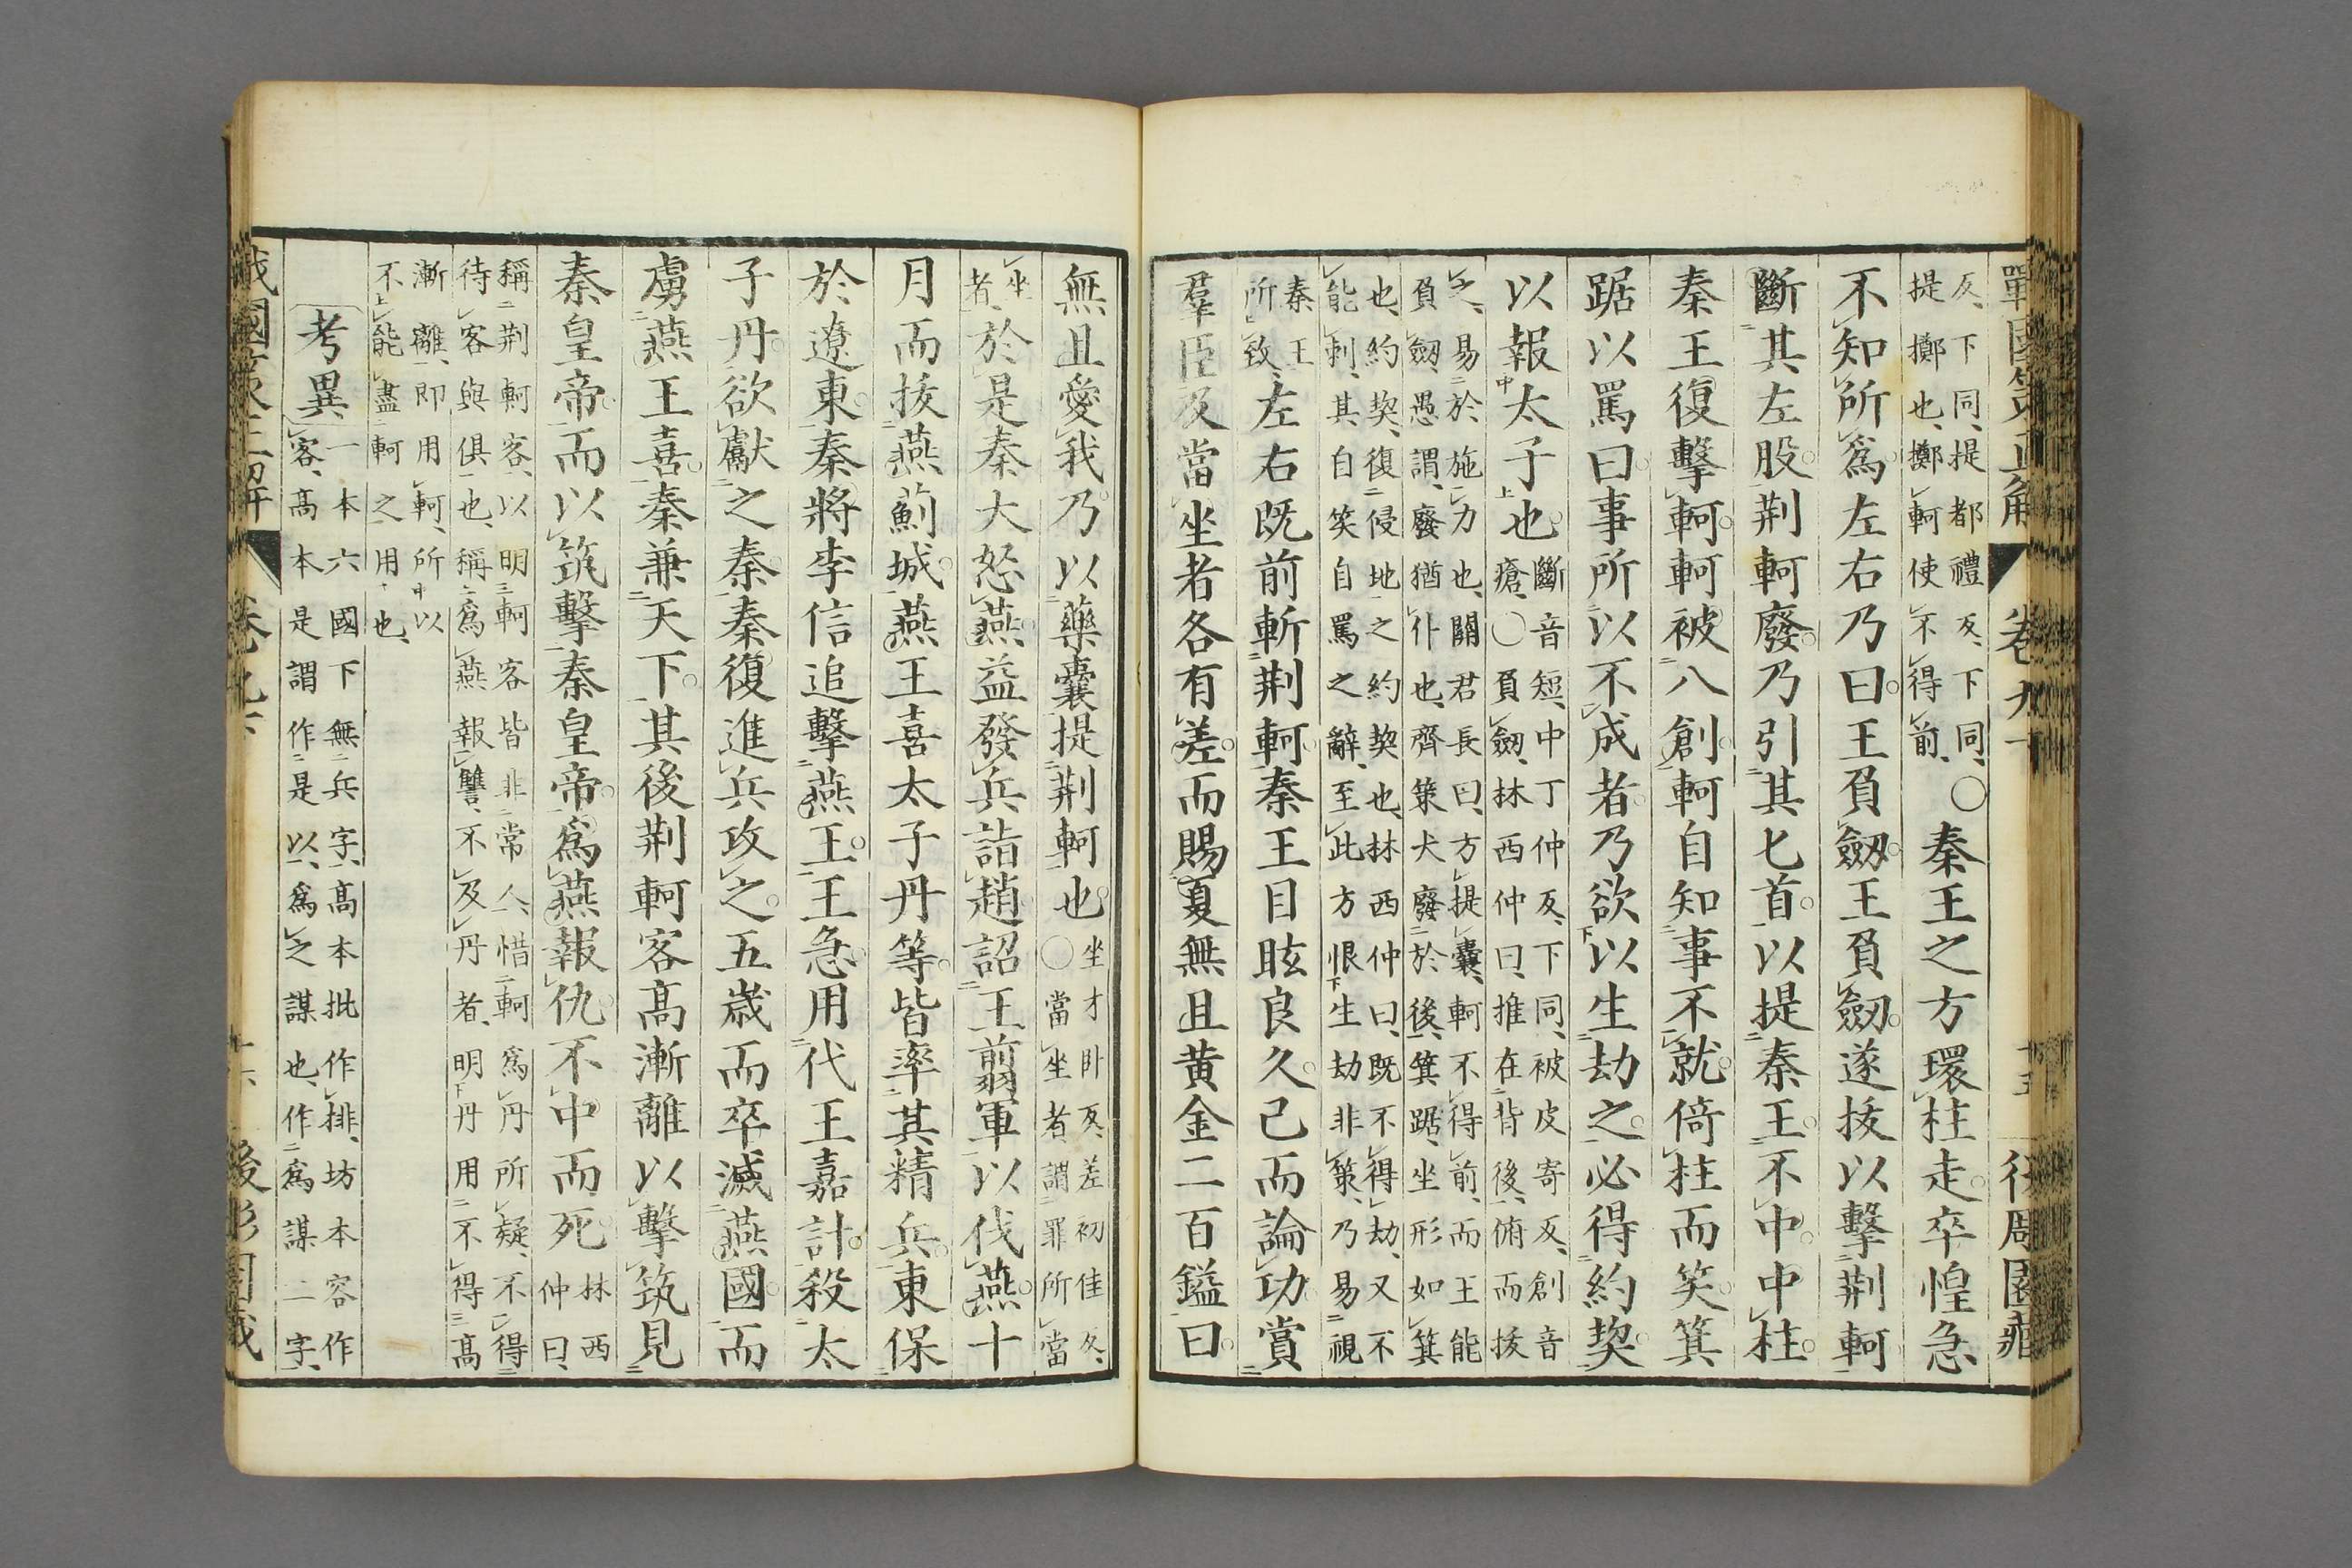 戰國策正解 卷九下 十五 後凋園藏
反、下同、提都禮反、下同、○
提擲也、擲軻使不得前、
秦王之方環柱走卒惶急
不知所爲左右乃曰王負劒王負劒遂拔以擊荆軻
斷其左股荆軻廢乃引其匕首以提秦王不中中柱
秦王復擊軻軻被八創軻自知事不就倚柱而笑箕
踞以罵曰事所以不成者乃欲以生劫之必得約契
以報太子也
斷音短、中丁仲反、下同、被皮寄反、創音
瘡、○負劒、林西仲曰、推在背後、俯而拔
之、易於施力也、關君長曰、方提囊、軻不得前、而王能
負劒、愚謂、廢猶仆也、齊策犬廢於後、箕踞、坐形如箕
也、約契、復侵地之約契也、林西仲曰、既不得劫、又不
能刺、其自笑自罵之辭、至此方恨生劫非策、乃易視
秦王
所致、
左右既前斬荆軻秦王目眩良久已而論功賞
羣臣及當坐者各有差而賜夏無且黄金二百鎰曰
無且愛我乃以藥囊提荆軻也
坐才卧反、差初佳反、
○當坐者、謂罪所當
坐
者、
於是秦大怒燕益發兵詣趙詔王翦軍以伐燕十
月而拔燕薊城燕王喜太子丹等皆率其精兵東保
於遼東秦將李信追擊燕王王急用代王嘉計殺太
子丹欲獻之秦秦復進兵攻之五歲而卒滅燕國而
虜燕王喜秦兼天下其後荆軻客高漸離以擊筑見
秦皇帝而以筑擊秦皇帝爲燕報仇不中而死
林西
仲曰、
稱荆軻客、以明軻客皆非常人、惜軻爲丹所疑、不得
待客與俱也、稱爲燕報讐、不及丹者、明丹用不得高
漸離、即用軻、所以
不能盡軻之用也、
考異
一本六國下無兵字、高本批作排、坊本容作
客、高本是謂作是以、爲之謀也、作爲謀二字、
戰國策正解 卷九下 十六 後凋園藏